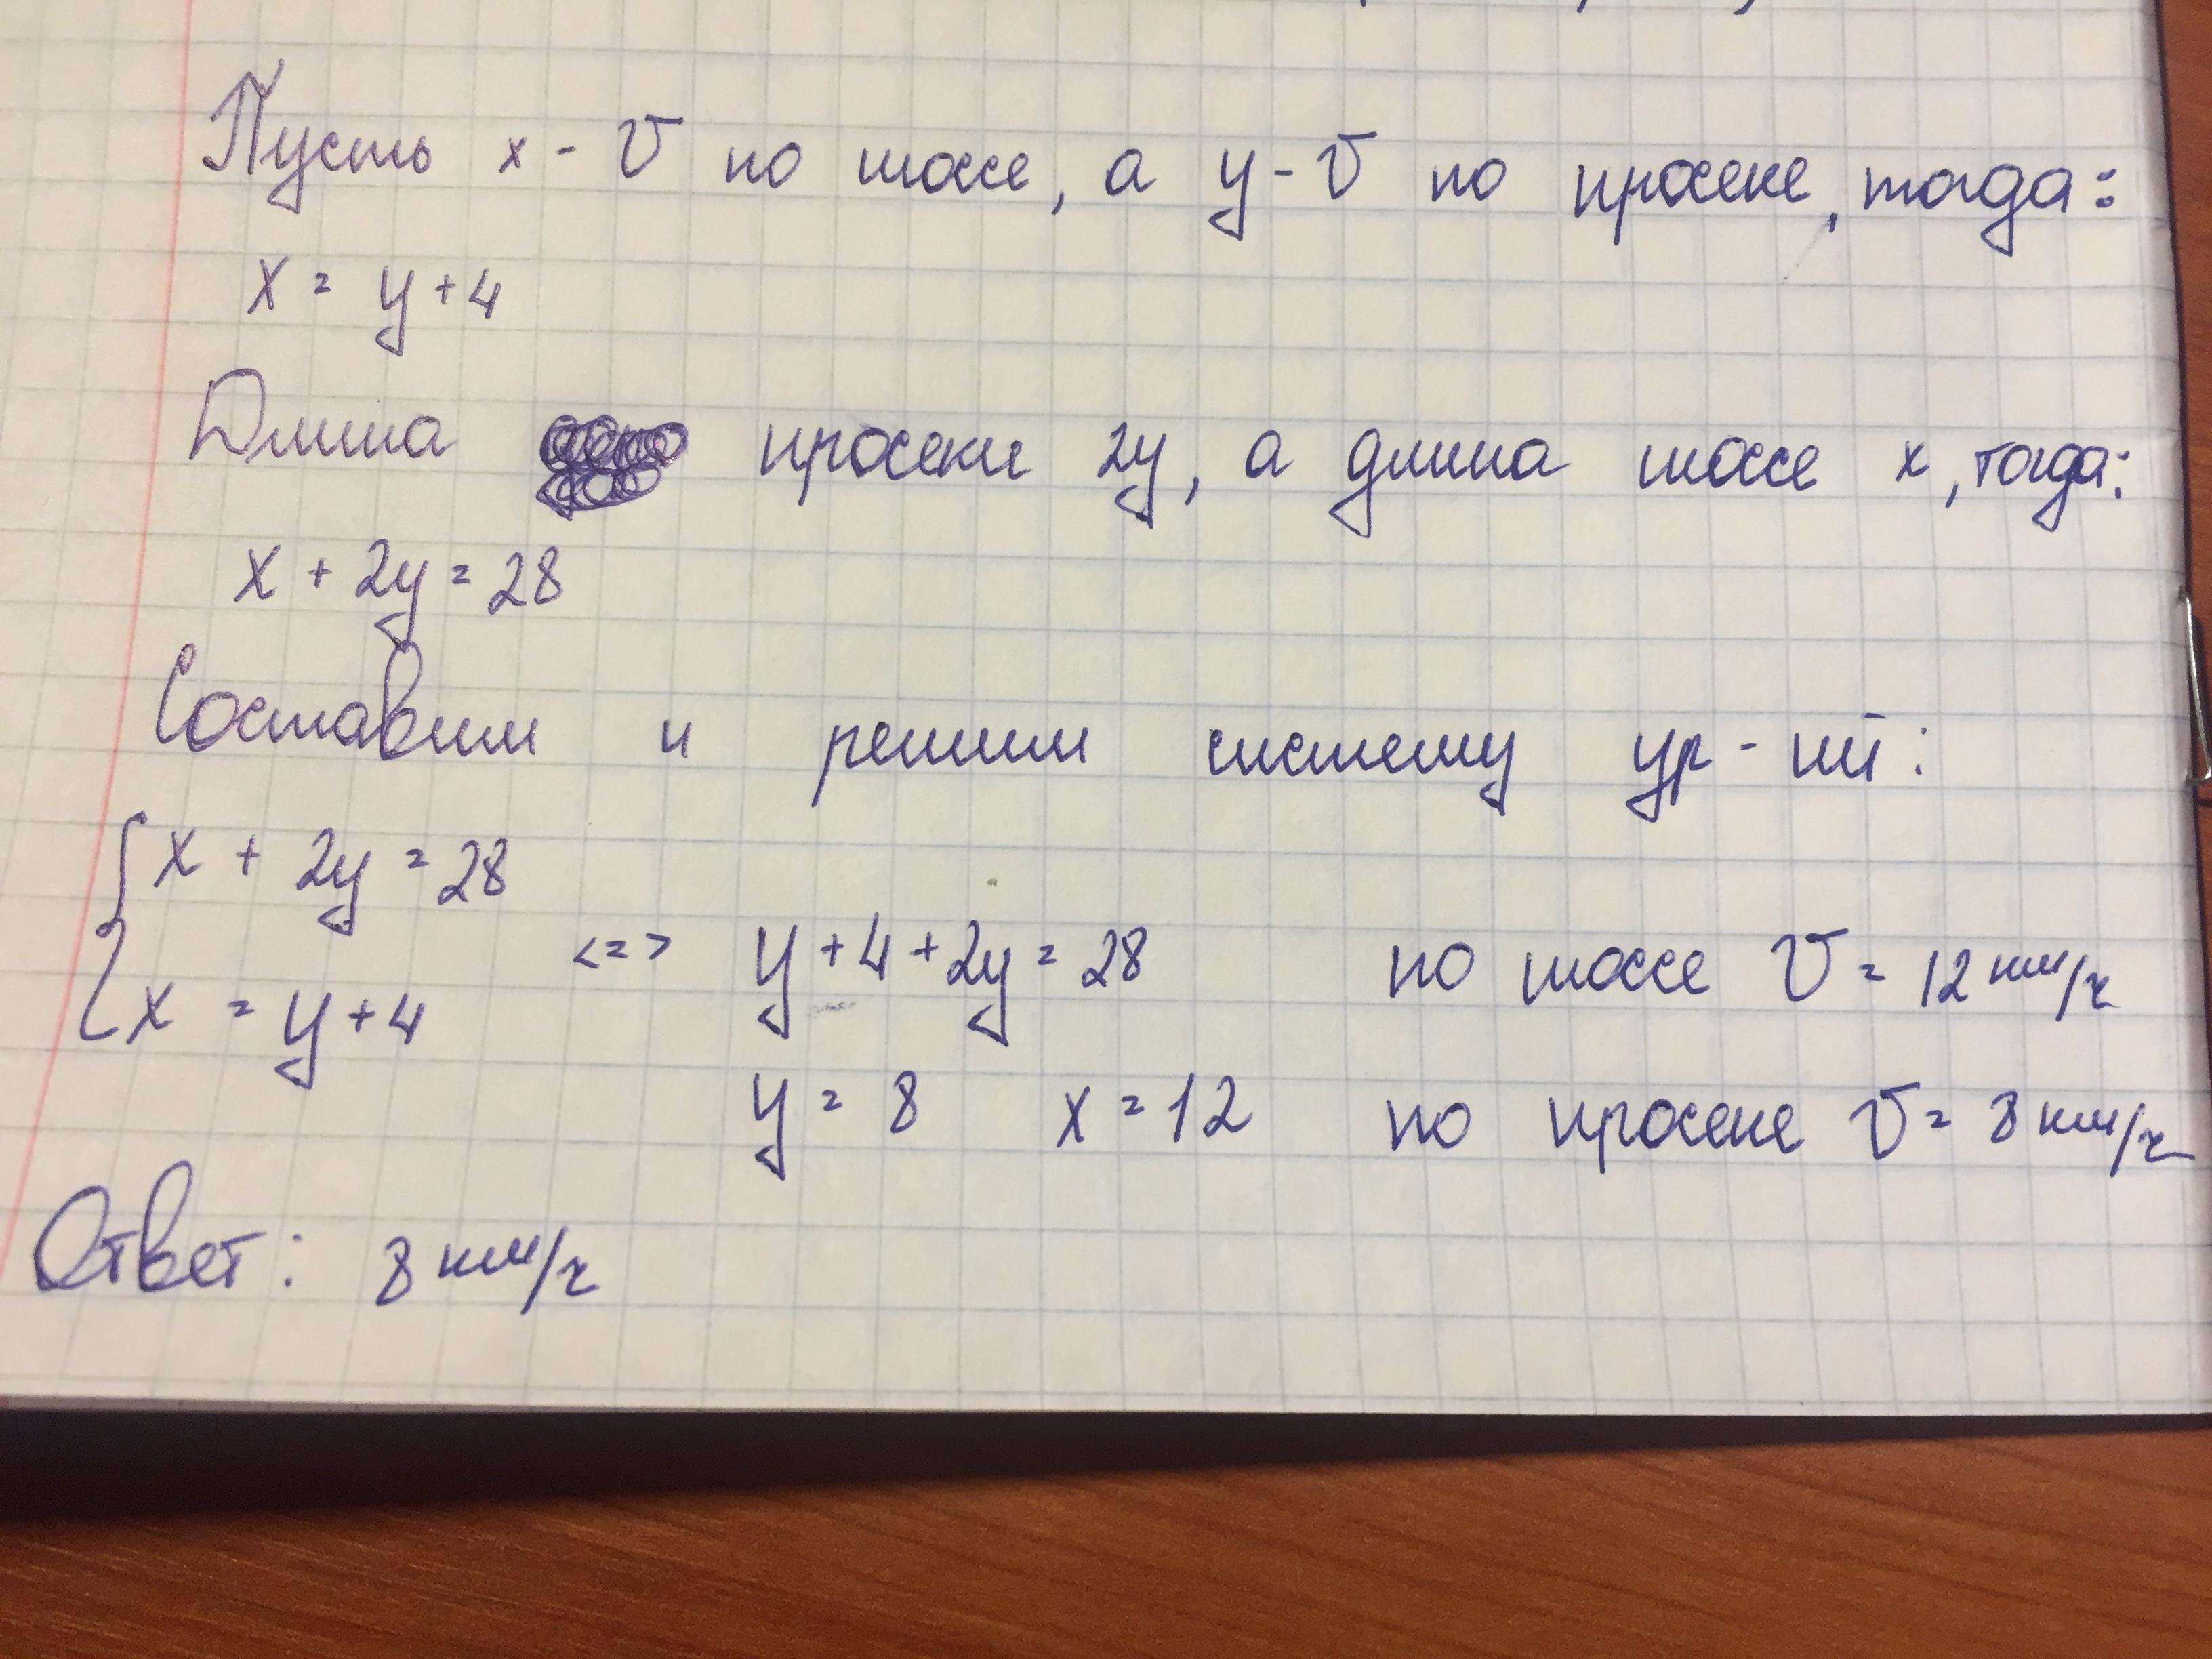 Пусть x - v по шоссе, а y - v по просеке, тогда:
x = y + 4
Длина просеки 2y, а длина шоссе x, тогда:
x + 2y = 28
Составим и решим систему ур-ий:
{ x + 2y = 28
x = y + 4 <=> y + 4 + 2y = 28 по шоссе v = 12 км/ч
y = 8 x = 12 по просеке v = 8 км/ч
Ответ: 8 км/ч